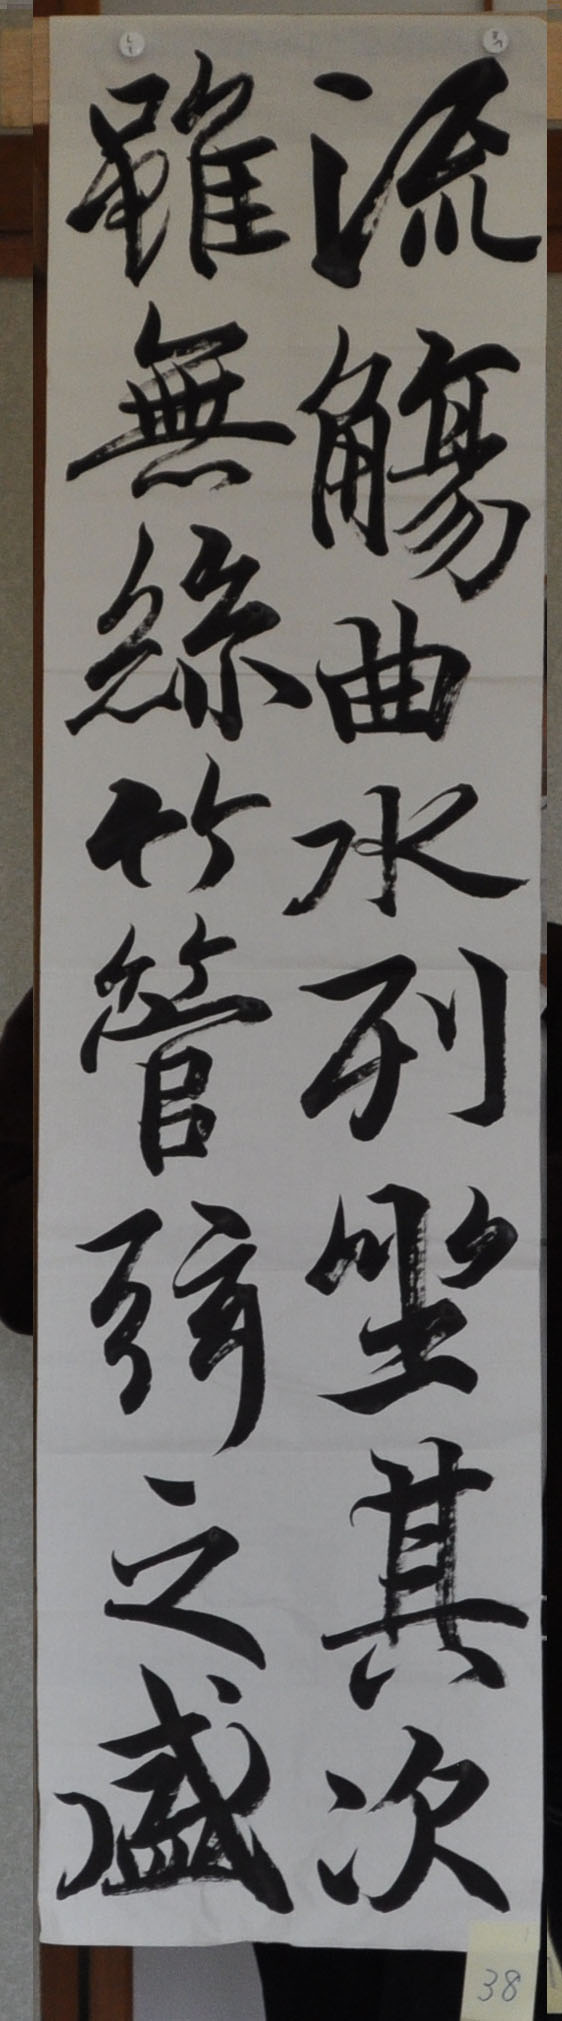 流觴曲水列坐其次
雖無絲竹管弦之盛
38